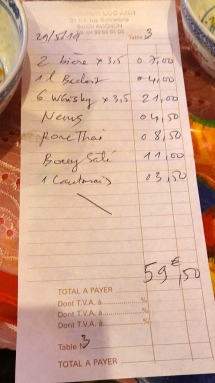 29/5/14 Table 3
2 bière x 3,5 07,00
1 l Badoit 04,00
6 Whisky x 3,5 21,00
Nems 04,50
Porc Thaï 08,50
Boeuf Saté 11,00
03,50
59€,50
TOTAL A PAYER
Dont T.V.A. à %
Dont T.V.A. à %
Dont T.V.A. à %
Table 3
TOTAL A PAYER